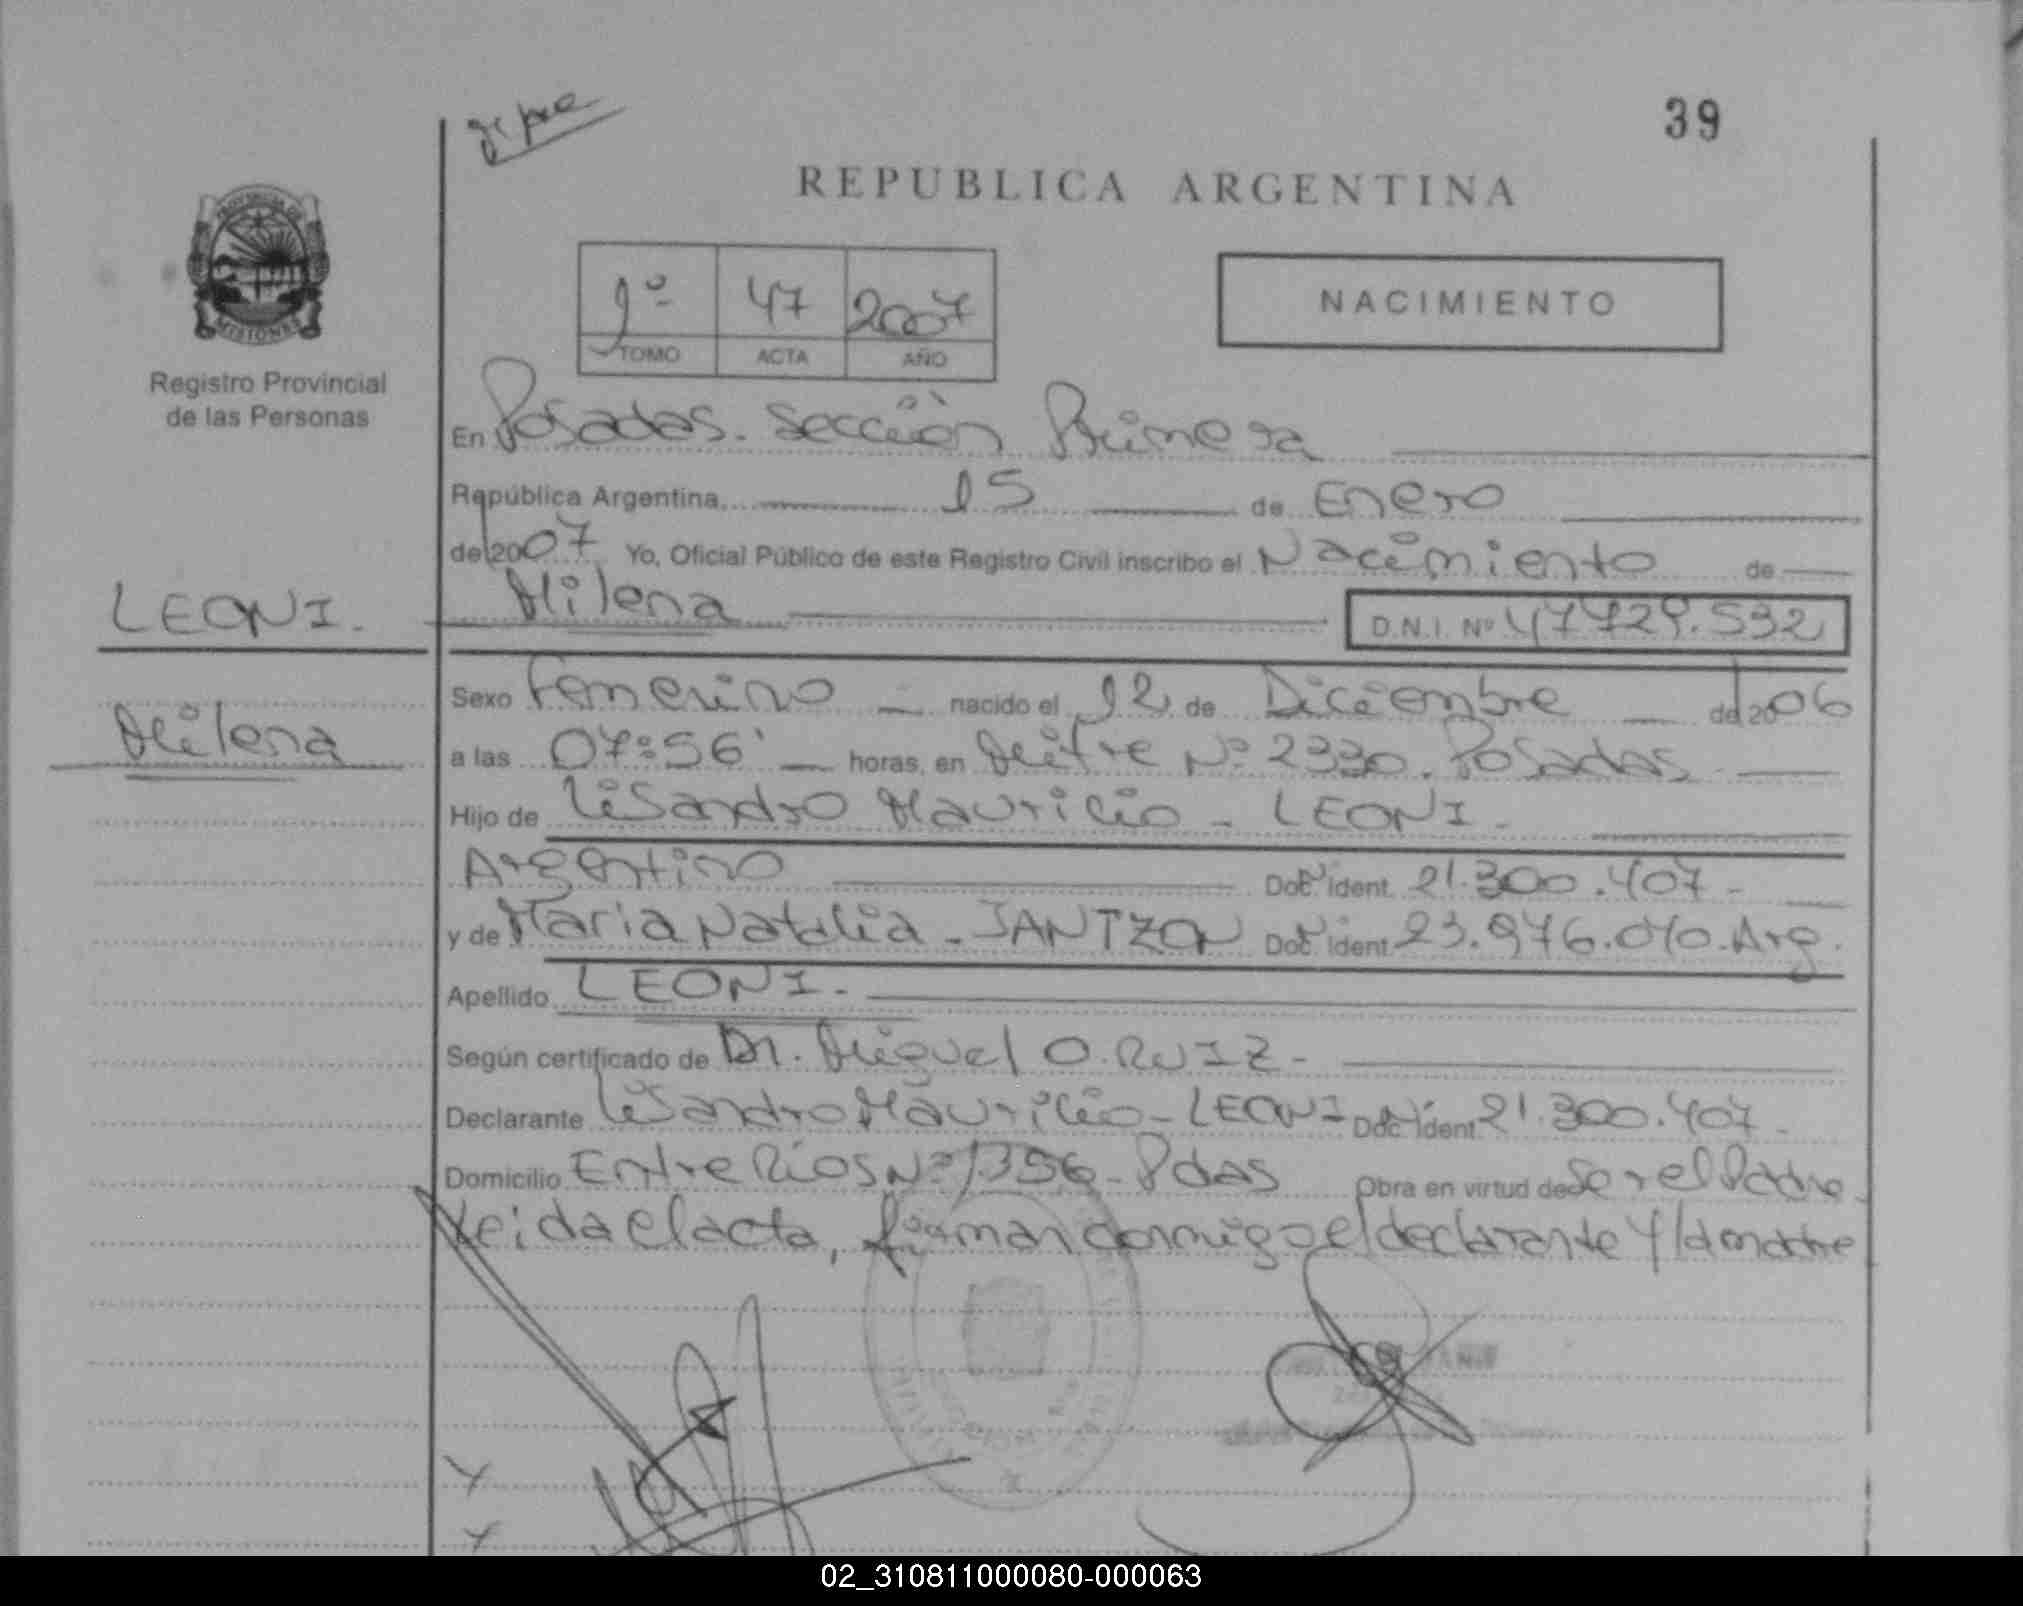 39
REPUBLICA ARGENTINA
PROVINCIA DE
MISIONES
Registro Provincial
de las Personas
1º 47 2007
TOMO ACTA AÑO
NACIMIENTO
En Posadas. Sección Primera
República Argentina, 15 de Enero
de 2007 Yo, Oficial Público de este Registro Civil inscribo el Nacimiento de
LEONI. Milena D.N.I. Nº 47.729.532
Sexo Femenino nacido el 12 de Diciembre de 2006
Milena
a las 07:56' horas, en Mitre Nº 2330. Posadas
Hijo de Lisandro Mauricio - LEONI.
Argentino Doc. Ident. 21.300.407-
y de Maria Natalia - JANTZON Doc. Ident. 23.976.070. Arg.
Apellido LEONI.
Según certificado de Dr. Miguel O. RUIZ-
Declarante Lisandro Mauricio - LEONI Doc. Ident. 21.300.407-
Domicilio Entre Rios Nº 1356 - Pdas Obra en virtud de Ser el Padre.
Leida el acta, firman conmigo el declarante y la madre
02_310811000080-000063